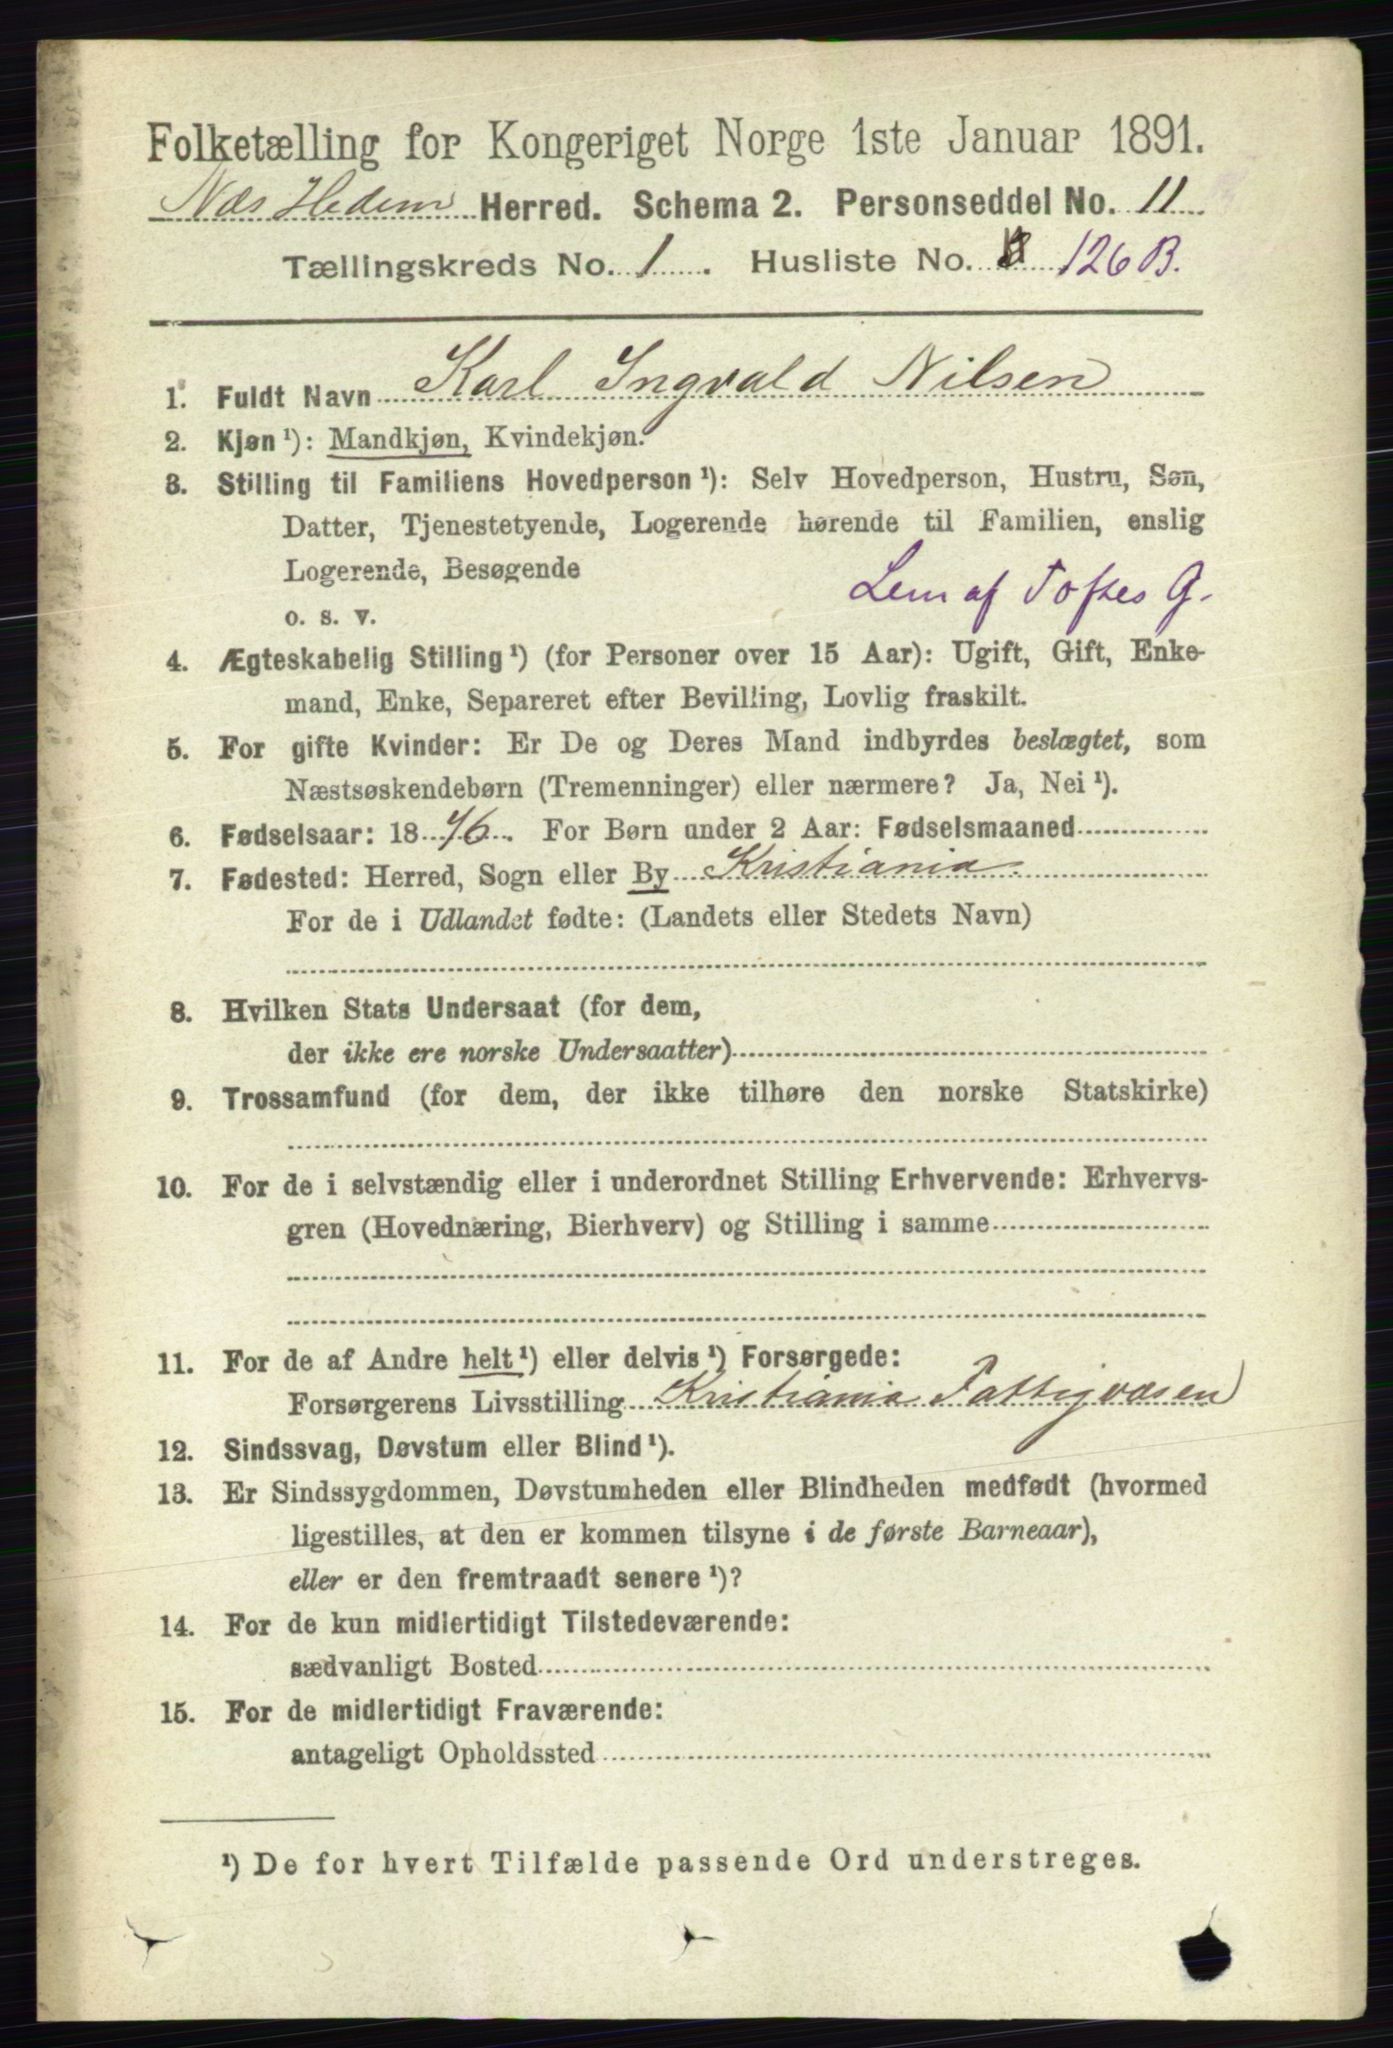 Folketælling for Kongeriget Norge 1ste Januar 1891.
Næs Hedem Herred. Schema 2. Personseddel No. 11
Tællingskreds No. 1. Husliste No. 126 B.
1. Fuldt Navn Karl Ingvald Nilsen
2. Kjøn ¹): Mandkjøn, Kvindekjøn.
3. Stilling til Familiens Hovedperson ¹): Selv Hovedperson, Hustru, Søn,
Datter, Tjenestetyende, Logerende hørende til Familien, enslig
Logerende, Besøgende
Lem af Toftes G.
o. s. v.
4. Ægteskabelig Stilling ¹) (for Personer over 15 Aar): Ugift, Gift, Enke-
mand, Enke, Separeret efter Bevilling, Lovlig fraskilt.
5. For gifte Kvinder: Er De og Deres Mand indbyrdes beslægtet, som
Næstsøskendebørn (Tremenninger) eller nærmere? Ja, Nei ¹).
6. Fødselsaar: 18 76. For Børn under 2 Aar: Fødselsmaaned
7. Fødested: Herred, Sogn eller By Kristiania.
For de i Udlandet fødte: (Landets eller Stedets Navn)
8. Hvilken Stats Undersaat (for dem,
der ikke ere norske Undersaatter)
9. Trossamfund (for dem, der ikke tilhøre den norske Statskirke)
10. For de i selvstændig eller i underordnet Stilling Erhvervende: Erhvervs-
gren (Hovednæring, Bierhverv) og Stilling i samme
11. For de af Andre helt ¹) eller delvis ¹) Forsørgede:
Forsørgerens Livsstilling Kristiania Fattigvæsen
12. Sindssvag, Døvstum eller Blind ¹).
13. Er Sindssygdommen, Døvstumheden eller Blindheden medfødt (hvormed
ligestilles, at den er kommen tilsyne i de første Barneaar),
eller er den fremtraadt senere ¹)?
14. For de kun midlertidigt Tilstedeværende:
sædvanligt Bosted
15. For de midlertidigt Fraværende:
antageligt Opholdssted
¹) De for hvert Tilfælde passende Ord understreges.